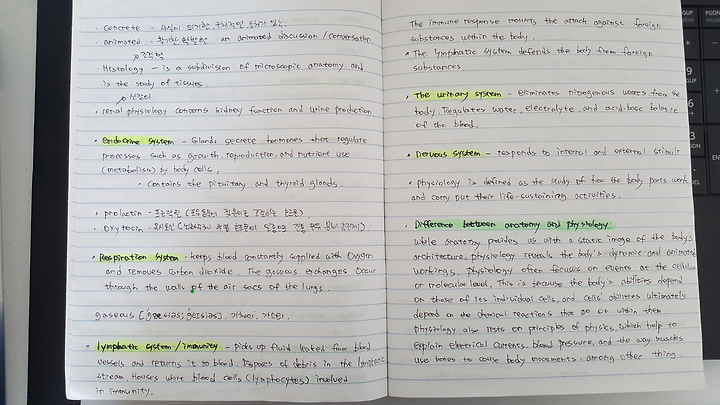 · concrete -
· animated - an animated discussion / conversation.
조직학
· Histology - is a subdivision of microscopic anatomy and
is the study of tissues.
· renal physiology concerns kidney function and urine production
· Endocrine system - Glands secrete hormones that regulate
processes such as growth, reproduction, and nutrient use
(metabolism) by body cells,
· contains the pituitary and thyroid glands.
· prolactin - 프로락틴
· oxytocin - 옥시토신
· Respiration system - keeps blood constantly supplied with oxygen
and removes carbon dioxide. The gaseous exchanges occur
through the walls of the air sacs of the lungs.
gaseous
· lymphatic system / immunity - Picks up fluid leaked from blood
vessels and returns it to blood. Disposes of debris in the lymphatic
stream. Houses white blood cells (lymphocytes) involved
in immunity.
The immune response mounts the attack against foreign
substances within the body.
· The lymphatic system defends the body from foreign
substances
· The urinary system - Eliminates nitrogenous wastes from the
body. Regulates water, electrolyte, and acid-base balance
of the blood.
· Nervous system - responds to internal and external stimuli
· physiology is defined as the study of how the body parts work
and carry out their life-sustaining activities.
· Difference between anatomy and physiology
While anatomy provides us with a static image of the body's
architecture, physiology reveals the body's dynamic and animated
workings. Physiology often focuses on events at the cellular
or molecular level. This is because the body's abilities depend
on those of its individual cells, and cells' abilities ultimately
depend on the chemical reactions that go on within them.
physiology also rests on principles of physics, which help to
explain electrical currents, blood pressure, and the way muscles
use bones to cause body movements, among other thing
PGUP
PGDN
9
PGUP
6
3
PGDN